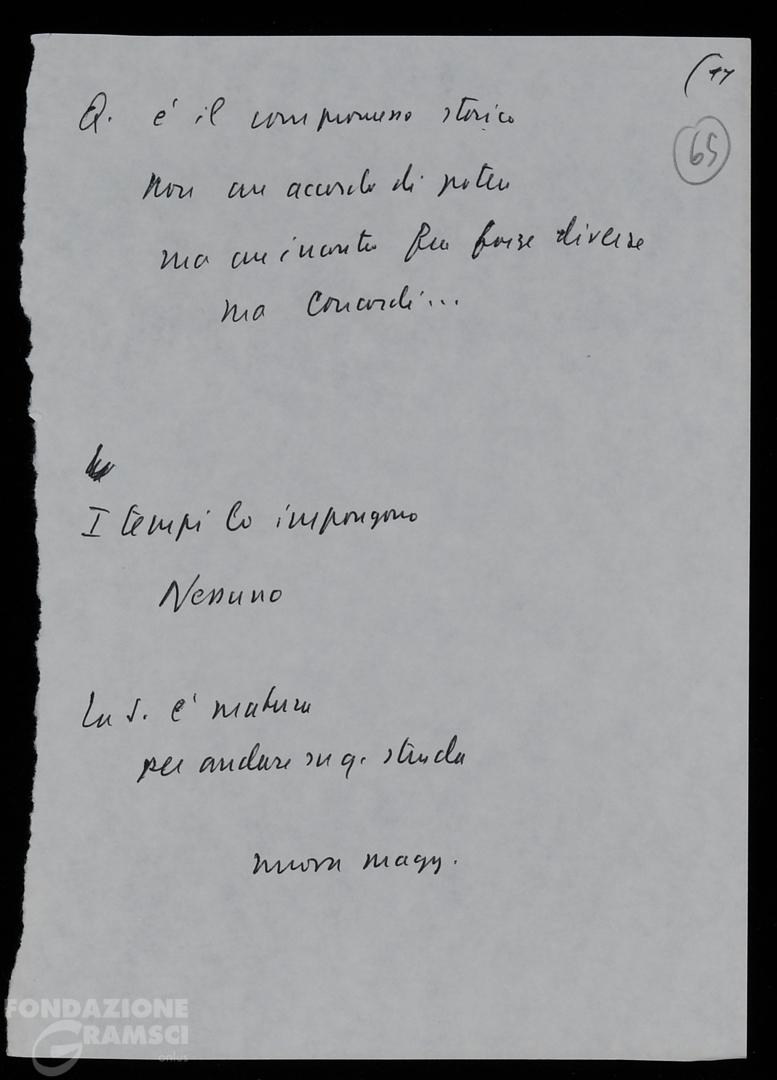 (17
65
Q. è il compromesso storico
Non un accordo di potere
ma un incontro fra forze diverse
ma concordi...
I tempi lo impongono
Nessuno
La S. è matura
per andare su q. strada
nuova magg.
FONDAZIONE
GRAMSCI
onlus